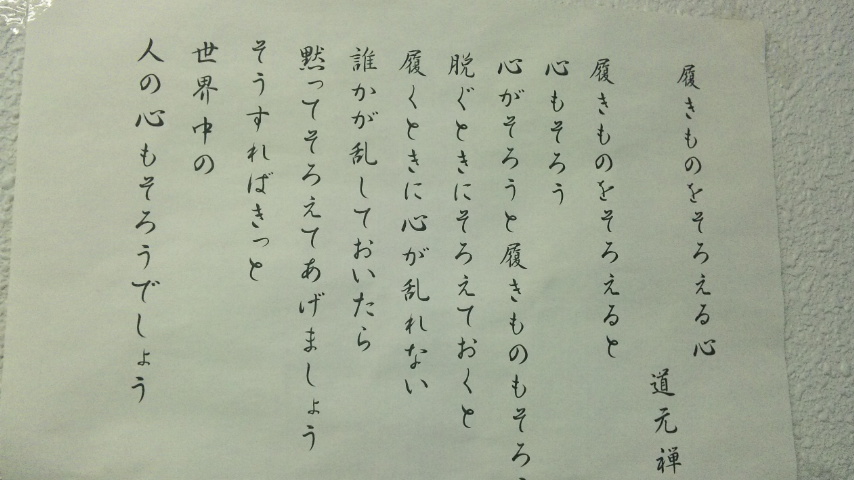 履きものをそろえる心
道元禅
履きものをそろえると
心もそろう
心がそろうと履きものもそろ
脱ぐときにそろえておくと
履くときに心が乱れない
誰かが乱しておいたら
黙ってそろえてあげましょう
そうすればきっと
世界中の
人の心もそろうでしょう